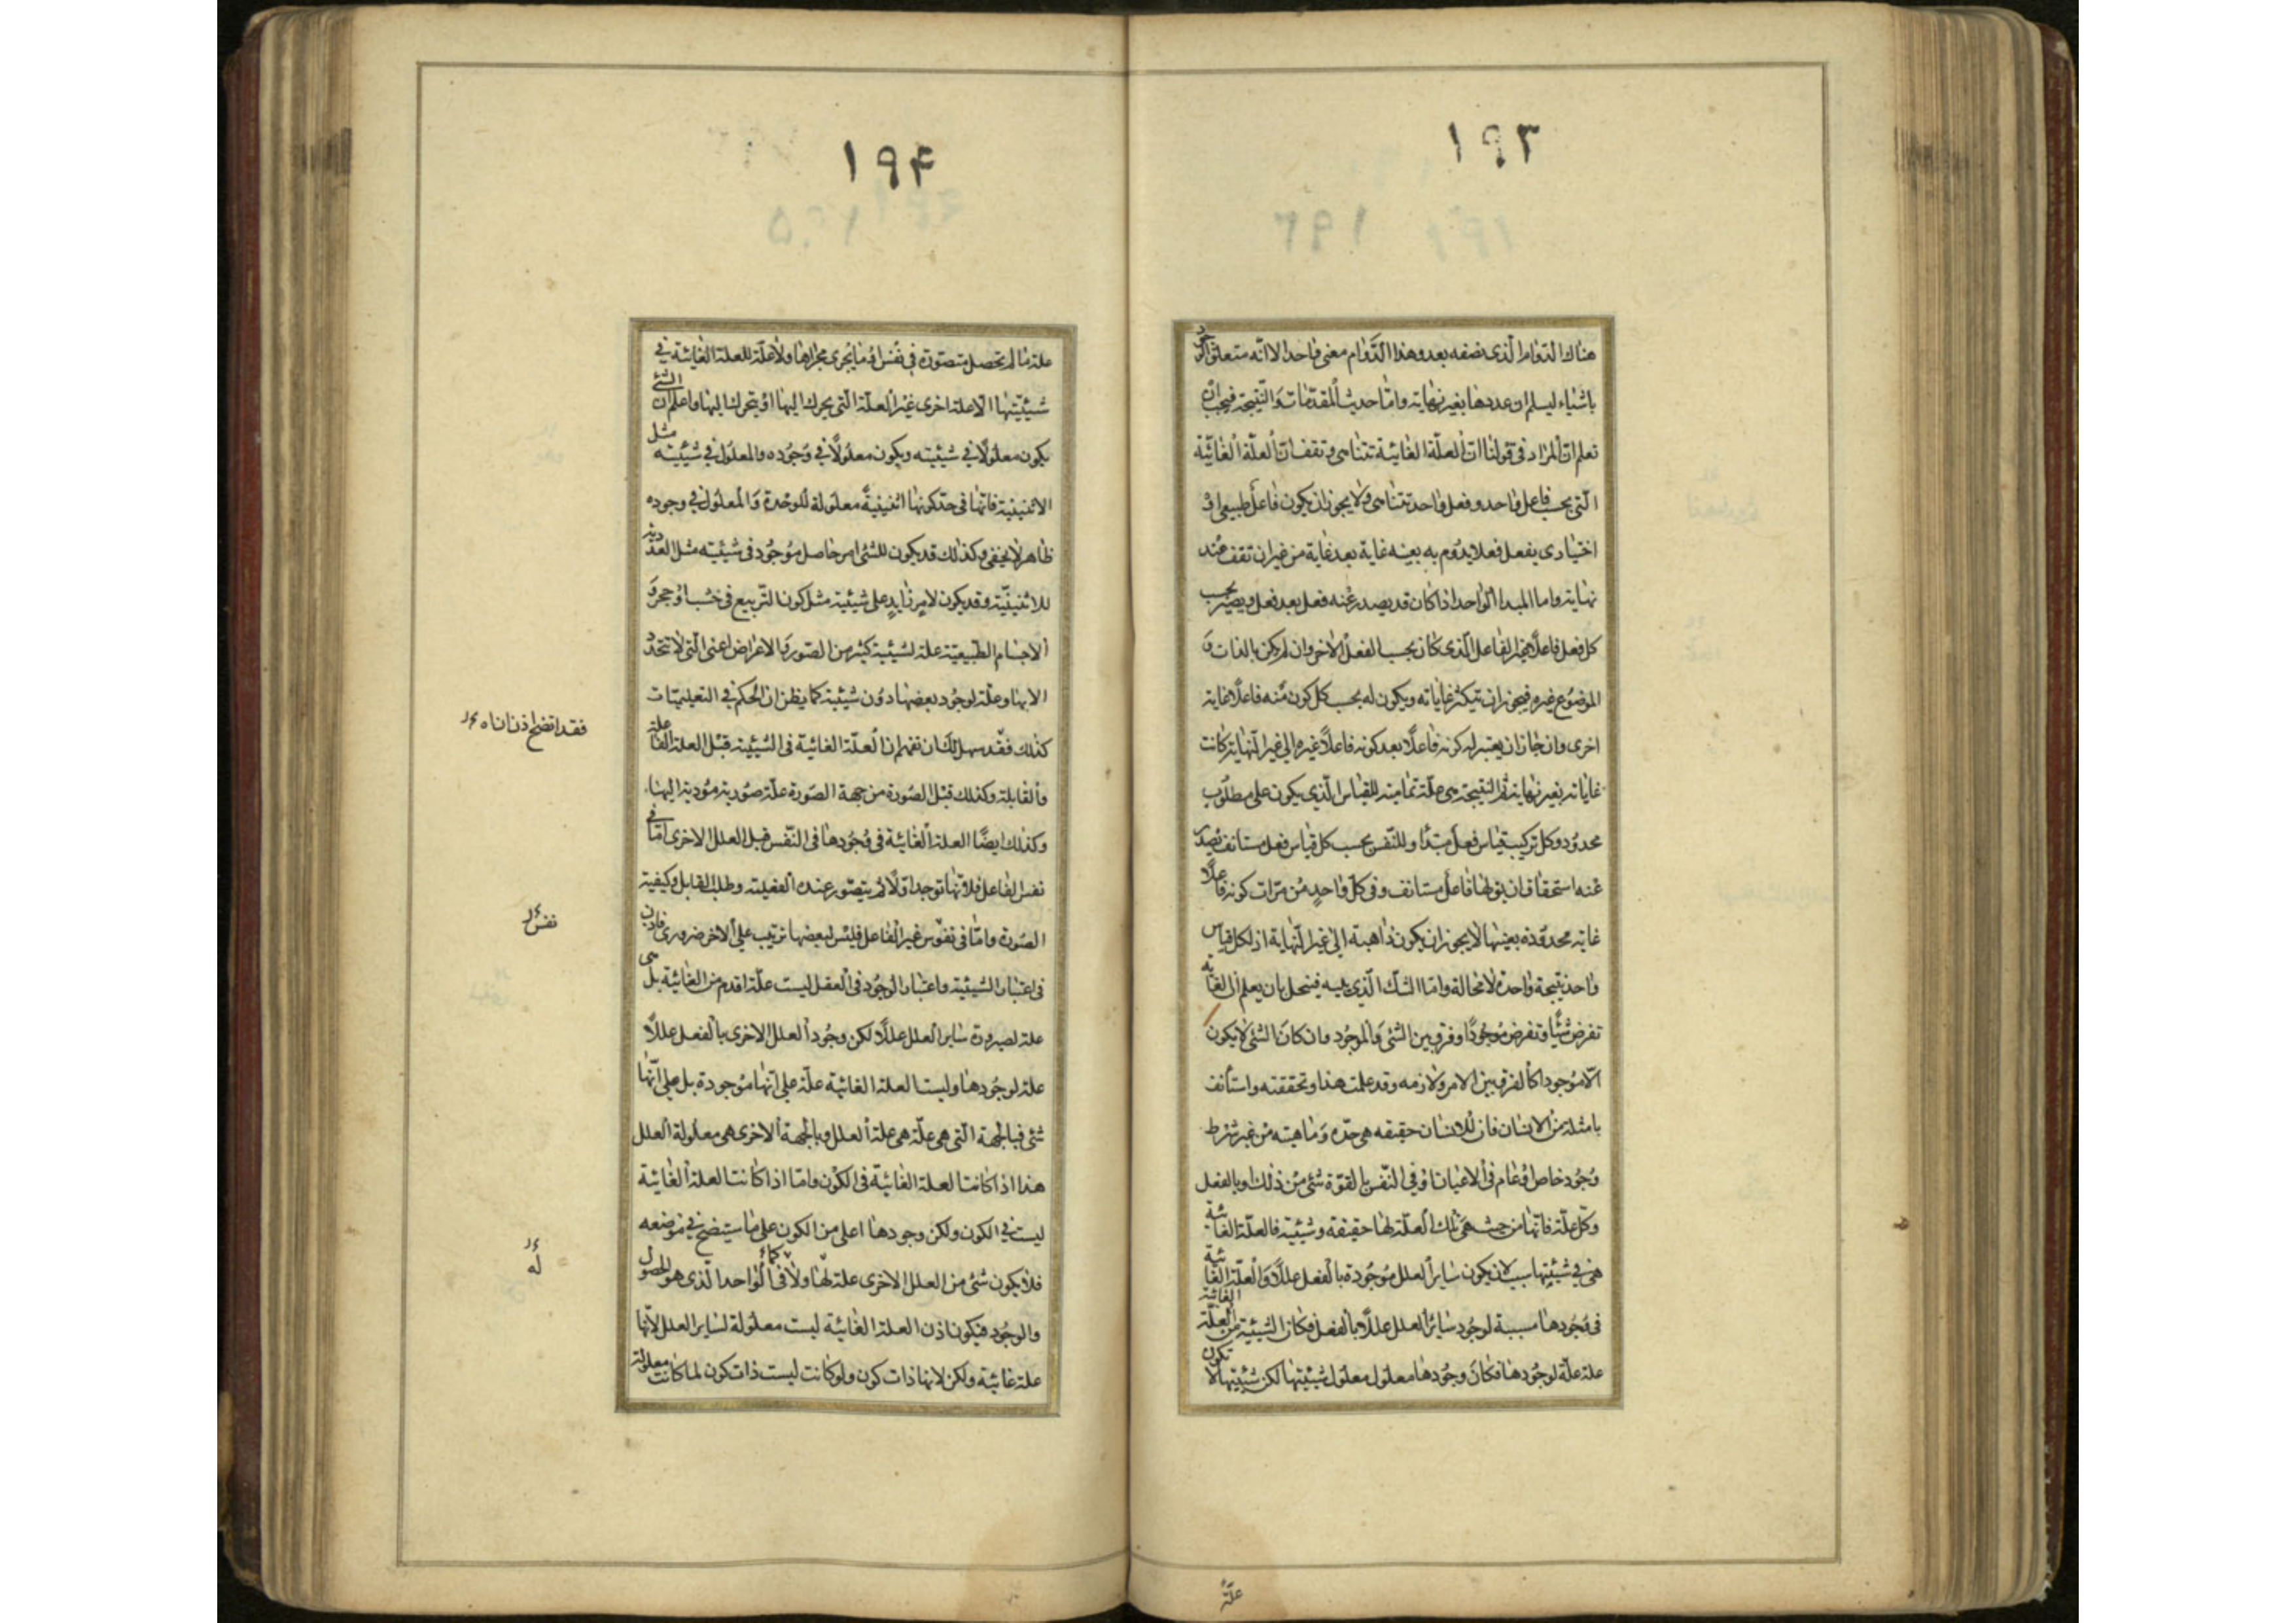 ١٩٣
هناك الدوام الذى نضفه بعد وهذا الدَّوام معنى واحد الا انّه متعلق
باشياء ليسلم ان عددها بغير نهاية وامّا حديث المقدّمات وَالنّتيجة فيجب ان
تعلم انّ المراد فى قولنا ان العلّة الغائيّة تتناهى وتقف انّ العلّة الغائيّة
الّتى بحسب فاعل واحد وفعل واحد تتناهى ولا يجوز ان يكون فاعل طبيعى او
اختيادى يفعل فعلا يدُوم به بعينه غاية بعد غاية من غير ان تقف عند
نهاية واما المبدا الواحد اذا كان قد يصدر عنه فعل بعد فعل ويصير بحسب
كل فعل فاعلًا غير الفاعل الّذى كان بحسب الفعل الاخر وان لم يكن بالذات وَ
الموضوع غيره فيجوز ان تتكثر غاياته ويكون له بحسب كل كون منه فاعلًا غاية
اخرى وان جاز ان يعتبر له كونه فاعلًا بعد كونه فاعلًا غيره الى غير النّهاية كانت
غاياته بغير نهاية ثم النتيجة هى علّة تمامية للقياس الّذى يكون على مطلوب
محدُود وكل تركيب قياس فعل مبتدأ وللنّفس بحسب كل قياس فعل مستانف يصدر
عنه استحقاق ان يق لها فاعل مستانف وفى كلّ واحدٍ من مرّات كونه فاعلًا
غاية محدودة بعينها لا يجوز ان يكون ذاهبة الى غير النّهاية اذ لكل قياس
واحد نتيجة واحدة لا محالة وامّا الشك الّذى يليه فينحل بان يعلم ان الغاية
تفرض شيئًا وتفرض موجُودًا وفرق بين الشئ وَالموجُود وان كان الشئ لا يكون
الّا موجودا كالفرق بين الامر ولازمه وقد علمت هذا وتحققته واستأنف
تامثله من الانسان فان للانسان حقيقه هى حدّه وَماهيته من غير شرط
وجُود خاص او عام فى الاعيان او فى النّفس بالقوّة شئ من ذلك او بالفعل
وكل علّة فانّها من حيث هى تلك العلّة لها حقيقة وشيئية فالعلّة الغائية
هى فى شيئيتها سبب لان يكون ساير العلل موجُودة بالفعل عللًا وَالعلّة الغائية
فى وجُودها مسببة لوجُود ساير العلل عللًا بالفعل فكان الشيئية من العلّة الغائية
علة علّة لوجُودها وكان وجُودها معلول معلول شيئيتها لكن شيئيتها لا تكون
علّة
١٩۴
علة ما لم تحصل متصوّرة فى نفس او ما يجرى مجراها ولا علّة للعلة الغائية فى
شيئيّتها الّا علة اخرى غير العلّة الّتى يحرك اليها او يتحرك اليها واعلم ان الشئ
يكون معلولًا فى شيئيته ويكون معلُولًا فى وجُوده والمعلول فى شيئيته مثل
الاثنينية فانّها فى حدّ كونها اثنينيةً معلولة للوحدة وَالمعلول فى وجوده
ظاهر لا يخفى وكذلك قد يكون للشئ امر حاصل موجُود فى شيئيته مثل العددية
للاثنينّية وقد يكون لامر زايدٍ على شيئيته مثل كون التّربيع فى خشب او حجر وَ
الاجسام الطّبيعيّة علة لشيئية كثير من الصّور وَالاعراض اعنى الّتى لا تتحدد
الا بها وعلّة لوجُود بعضها دون شيئية كما يظن ان الحكم فى التعليميّات
كذلك فقد سهل لك ان تفهم ان العلّة الغائية فى الشيئية قبل العلة الفاعلة
والقابلة وكذلك قبل الصورة من جهة الصّورة علّة صورية مؤدية اليها
وكذلك ايضًا العلة الغائية فى وجُودها فى النّفس قبل العلل الاخرى امّا فى
نفس الفاعل فلانّها توجد اوّلًا ثم يتصّور عنده الفعلية وطلب القابل وكيفية
الصّورة وامّا فى نفوس غير الفاعل فليس لبعضها ترتيب على الاخر ضرورى فاذن
فى اعتبار الشيئية واعتبار الوجُود فى العقل ليست علّة اقدم من الغائية بل هى
علة لصيرورة ساير العلل عللًا لكن وجُود العلل الاخرى بالفعل عللًا
علة لوجُودها وليست العلة الغائية علّة على انّها موجودة بل على انّها
شئ فبالجهة الّتى هى علّة هى علة العلل وبالجهة الاخرى هى معلولة العلل
هذا اذا كانت العلة الغائيّة فى الكون وامّا اذا كانت العلة الغائية
ليست فى الكون ولكن وجودها اعلى من الكون على ما سيتضح فى موضعه
فلا يكون شئ من العلل الاخرى علة لها ولا فى الواحد الّذى هو الحصول
والوجُود فيكون اذن العلة الغائية ليست معلولة لساير العلل لانّها
علة غائية ولكن لانها ذات كون ولو كانت ليست ذات كون لما كانت معلولة
فقد اتضح اذن انا
نفس
له